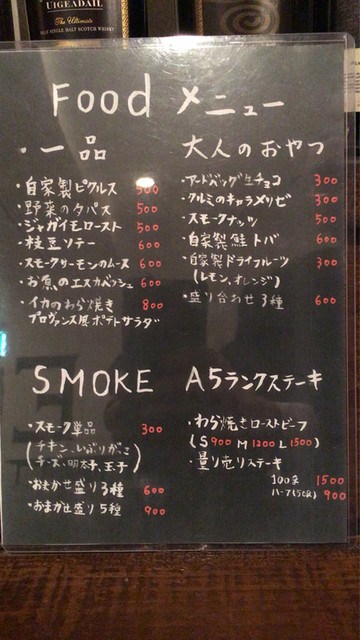 UIGEADAIL
The Ultimate
ISLAY SINGLE MALT SCOTCH WHISKY
Food メニュー
・一品
・自家製ピクルス 500
・野菜のタパス 500
・ジャガイモロースト 500
・枝豆ソテー 600
・スモークサーモンのムース 600
・お魚のエスカベッシュ 600
・イカのわら焼き 800
プロヴァンス風ポテトサラダ
大人のおやつ
・アードベッグ生チョコ 300
・クルミのキャラメリゼ 300
・スモークナッツ 500
・自家製鮭トバ 600
・自家製ドライフルーツ 300
(レモン、オレンジ)
・盛り合わせ3種 600
SMOKE
・スモーク単品 300
(チキン、いぶりがっこ
チーズ、明太子、玉子)
・おまかせ盛り3種 600
・おまかせ盛り5種 900
A5ランクステーキ
・わら焼きローストビーフ
(S 900 M 1200 L 1500)
・量り売りステーキ
100g 1500
ハーフ(50g) 900